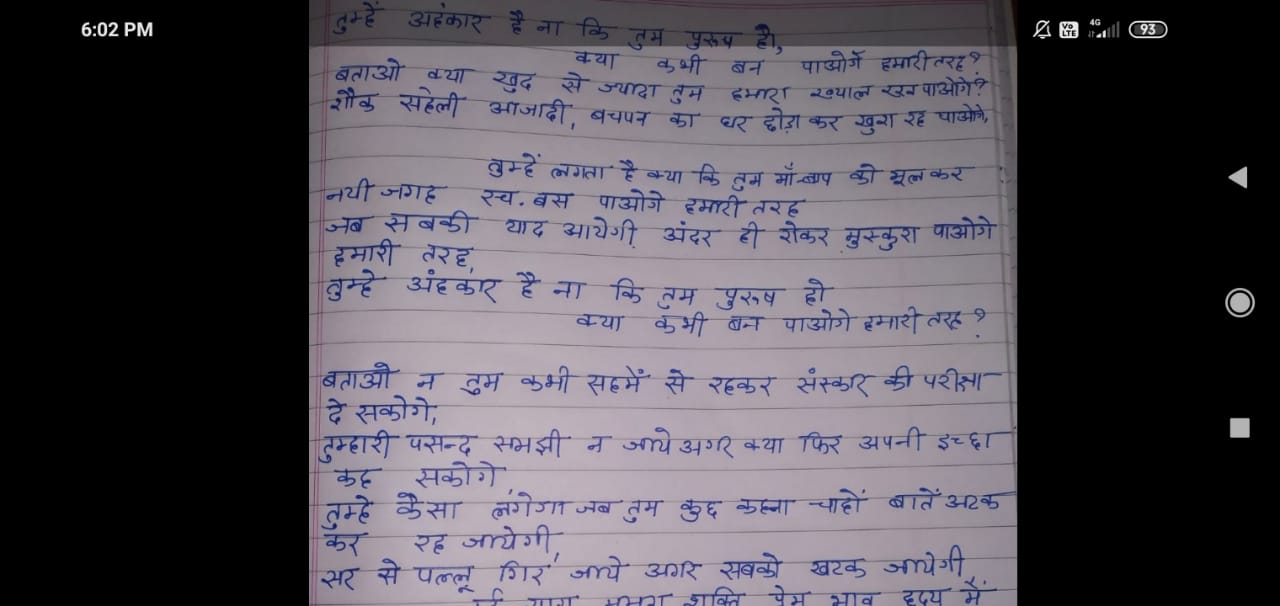 6:02 PM
Vo LTE 4G 93
तुम्हें अहंकार है ना कि तुम पुरुष हो,
क्या कभी बन पाओगें हमारी तरह?
बताओ क्या खुद से ज्यादा तुम हमारा ख्याल रख पाओगे?
शौक सहेली आजादी, बचपन का घर छोड़ा कर खुश रह पाओगे,
तुम्हें लगता है क्या कि तुम माँ-बाप को भूल कर
नयी जगह रच. बस पाओगे हमारी तरह
जब सबकी याद आयेगी अंदर ही रोकर मुस्कुरा पाओगे
हमारी तरह,
तुम्हे अंहकार है ना कि तुम पुरुष हो
क्या कभी बन पाओगे हमारी तरह?
बताओ न तुम कभी सहमें से रहकर संस्कार की परीक्षा
दे सकोगे,
तुम्हारी पसन्द समझी न जाये अगर क्या फिर अपनी इच्छा
कह सकोगे,
तुम्हे कैसा लगेगा जब तुम कुछ कहना चाहों बातें अटक
कर रह जायेगी,
सर से पल्लू गिर जाये अगर सबको खटक जायेगी,
शक्ति प्रेम भाव हृदय में